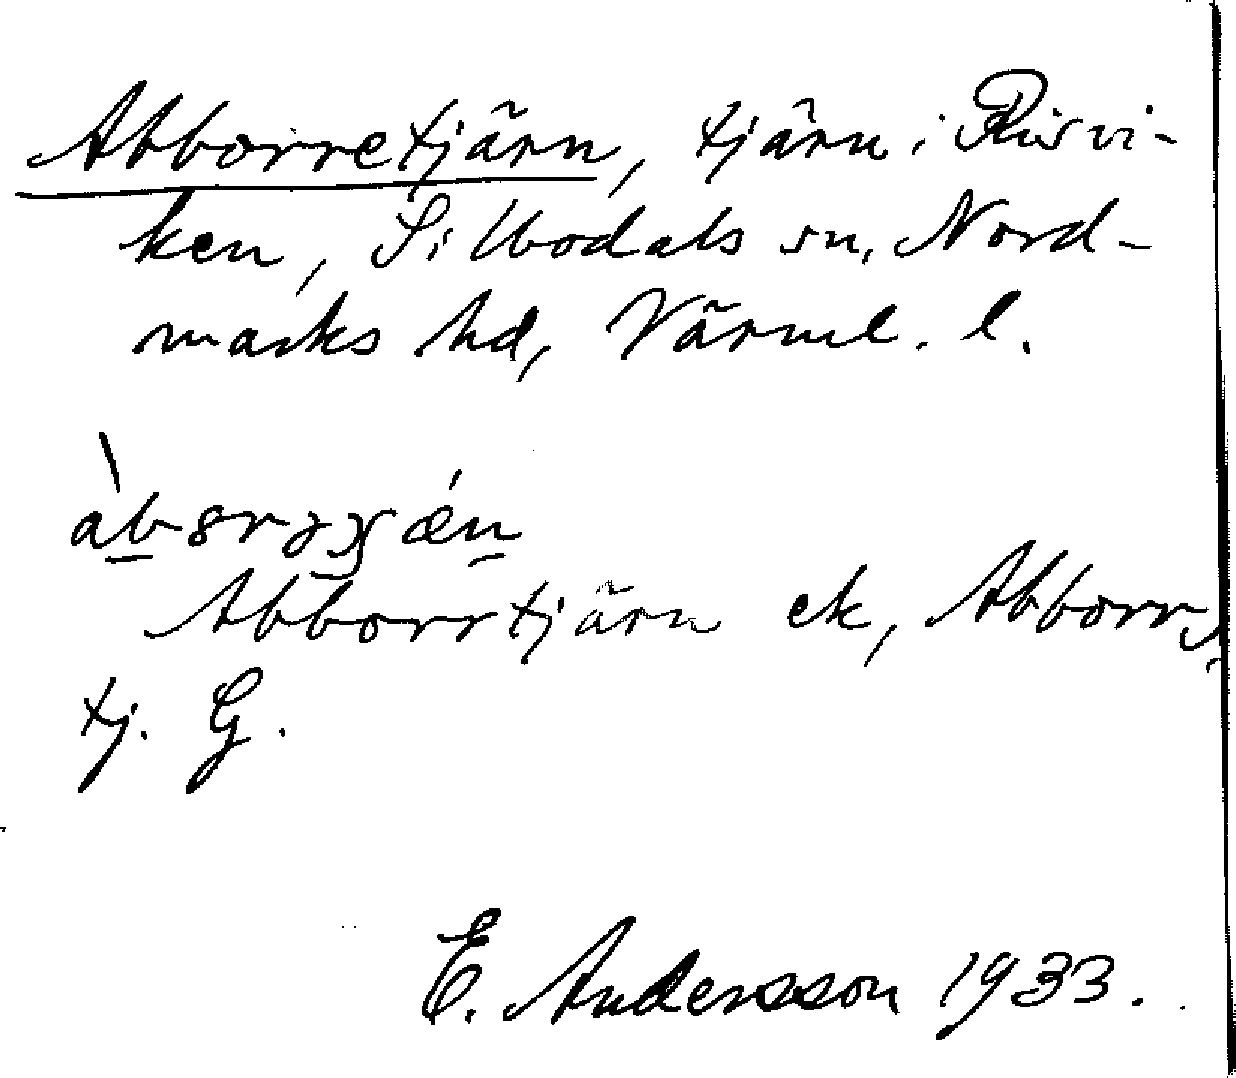 Abborretjärn, tjärn i Risvi-
ken, Sillbodals sn, Nord-
marks hd, Värml. l.
Abborrtjärn ek, Abborr-
tj. G.
E. Andersson 1933.